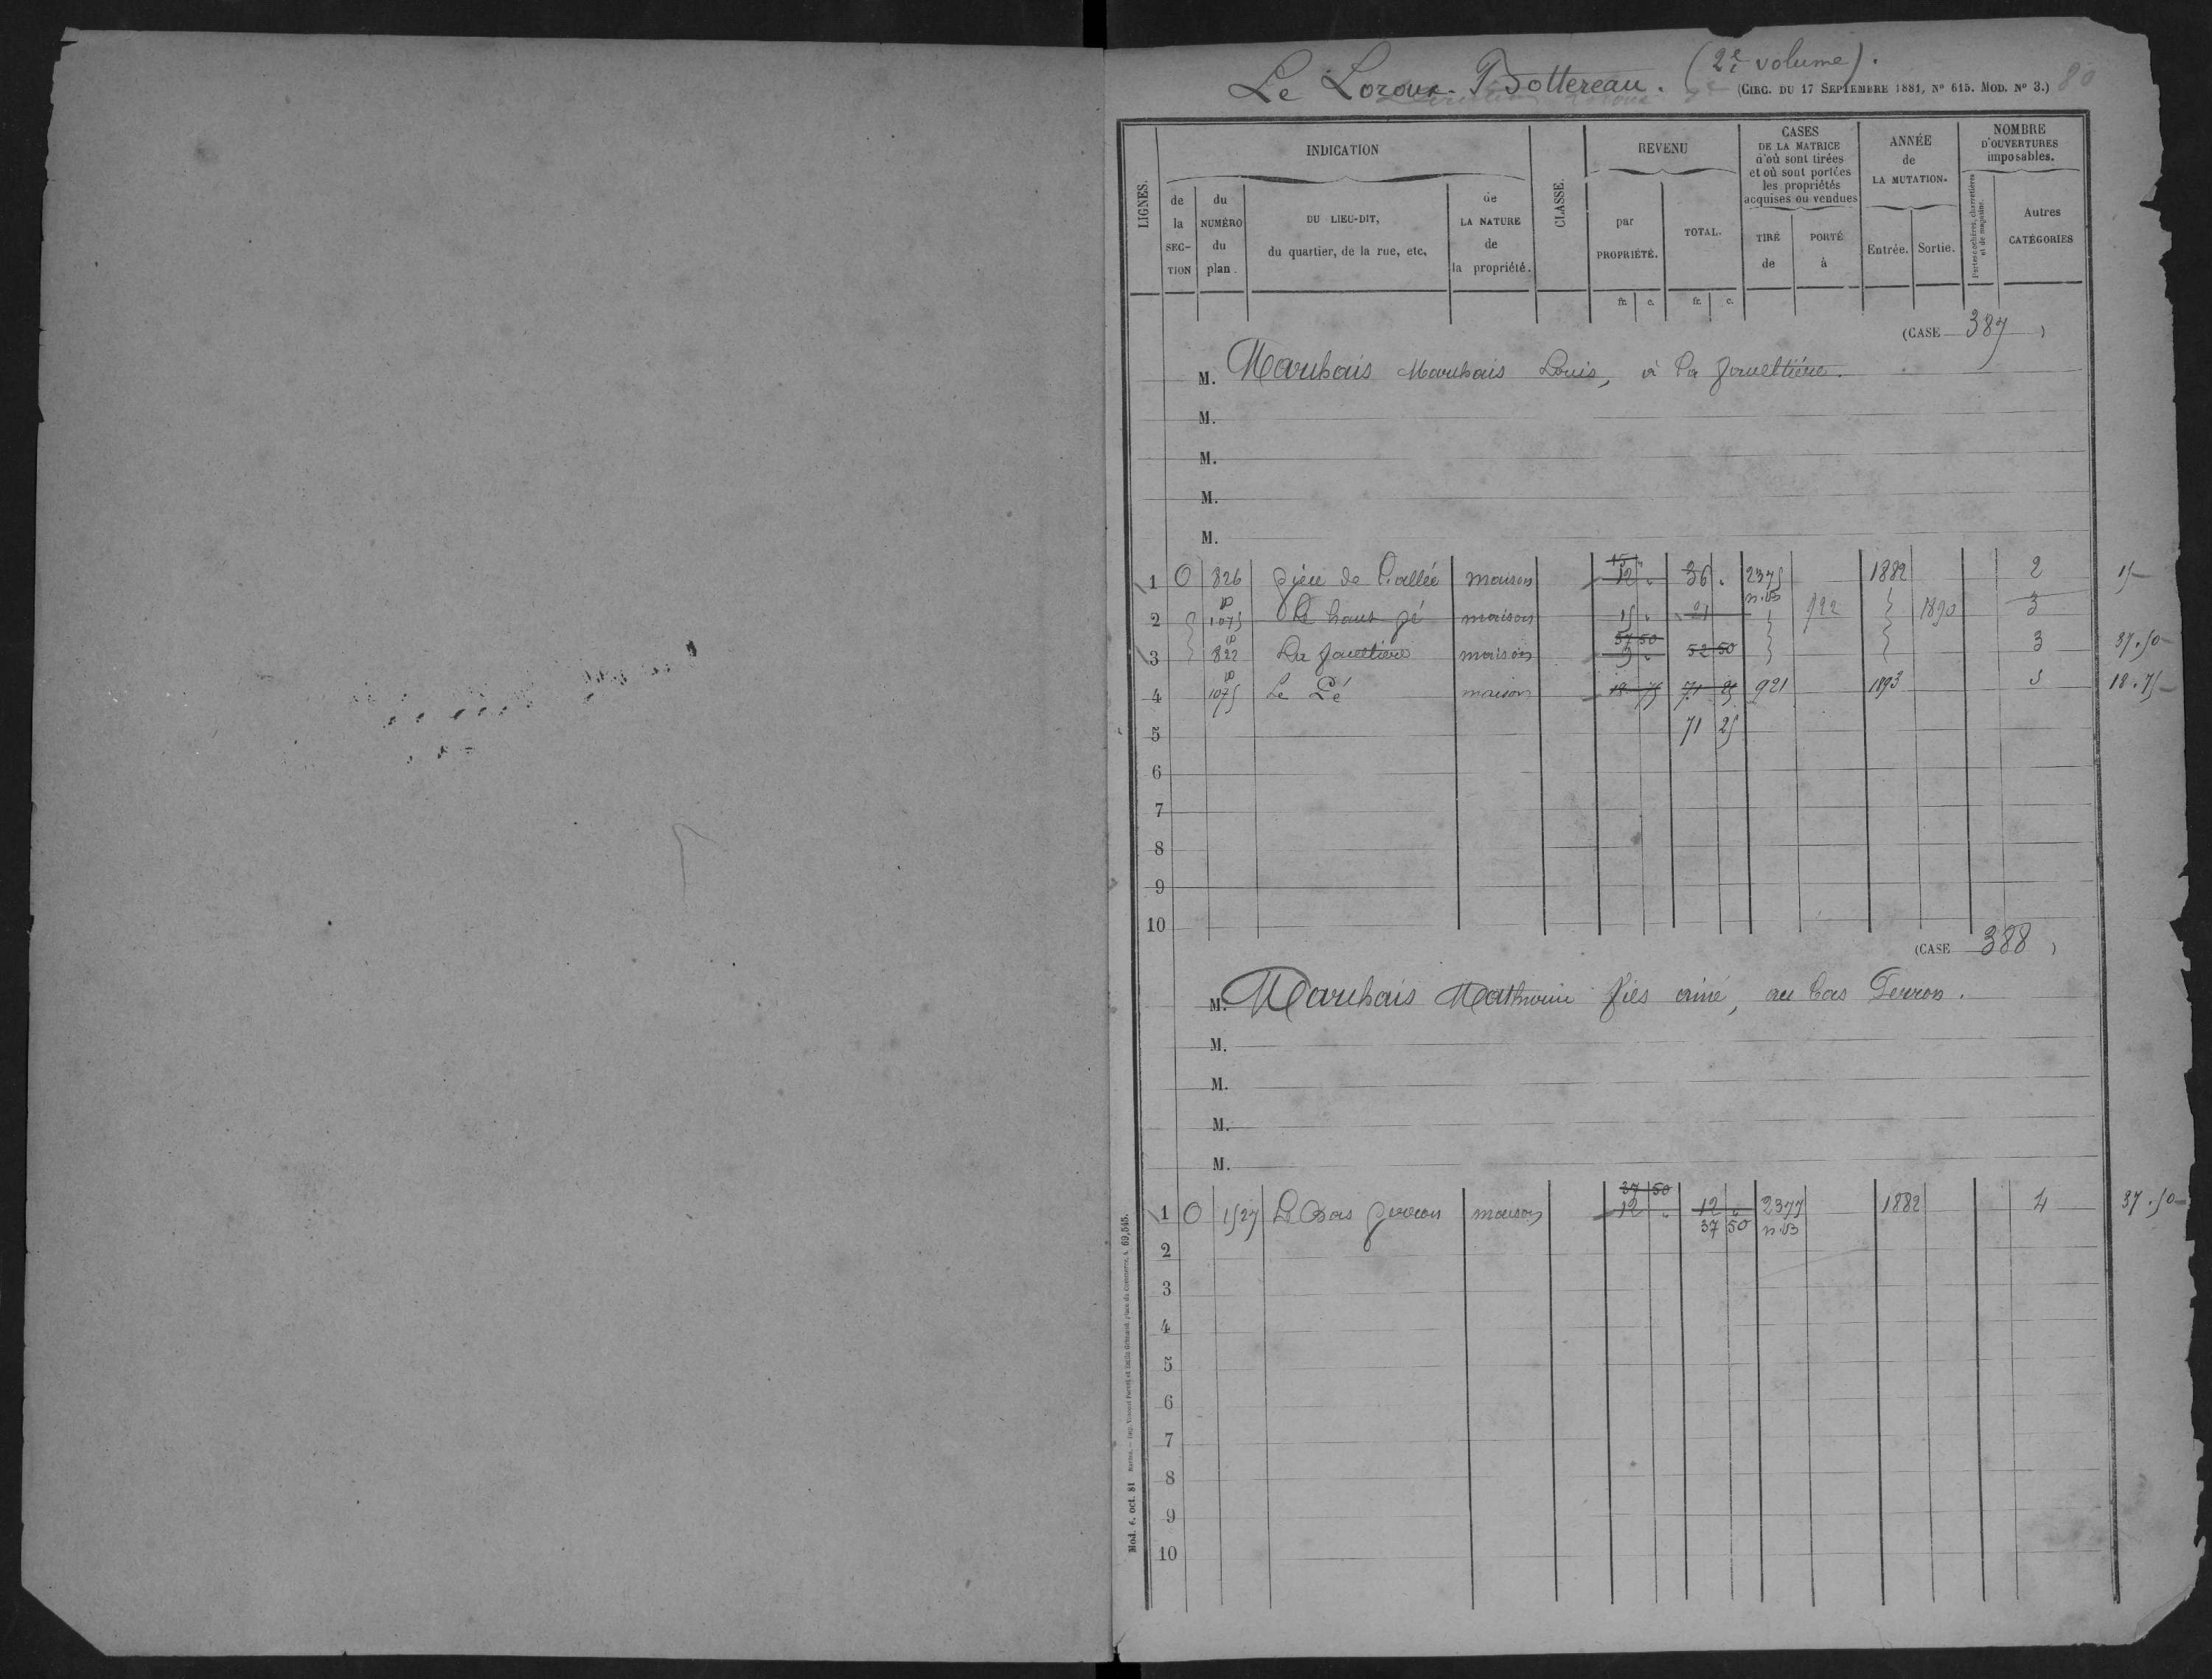 Le Loroux-Bottereau. (2e volume).
(CIRC. DU 17 SEPTEMBRE 1881, N° 615. MOD. N° 3.) 80
LIGNES.
INDICATION
de la SECTION
du NUMÉRO du plan.
DU LIEU-DIT, du quartier, de la rue, etc.
de LA NATURE de la propriété.
CLASSE.
REVENU
par PROPRIÉTÉ.
TOTAL.
fr. c. fr. c.
CASES DE LA MATRICE d'où sont tirées et où sont portées les propriétés acquises ou vendues
TIRÉ de
PORTÉ à
ANNÉE de LA MUTATION.
Entrée. Sortie.
NOMBRE D'OUVERTURES imposables.
Portes cochères, charretières et de magasins.
Autres CATÉGORIES
(CASE 387)
M. Louis, à la
M.
M.
M.
M.
15 "
1 O 826 maison 12 " 36 " 2375 1882 2 15
n.B
2 1075 Le haut maison 15 " 21 922 1890 3
37 50
3 822 La maison 9 " 52 50 3 37.50
4 1075 Le maison 18 75 71 25 921 1893 18.75
5 71 25
6
7
8
9
10
(CASE 388)
M. fils ainé, au bas
M.
M.
M.
M.
37 50
1 O 1527 Le Bas maison 12 " 12 " 2377 1882 4 37.50
37 50 n.B
2
3
4
5
6
7
8
9
10
Mod. 6. oct. 81
69,545.